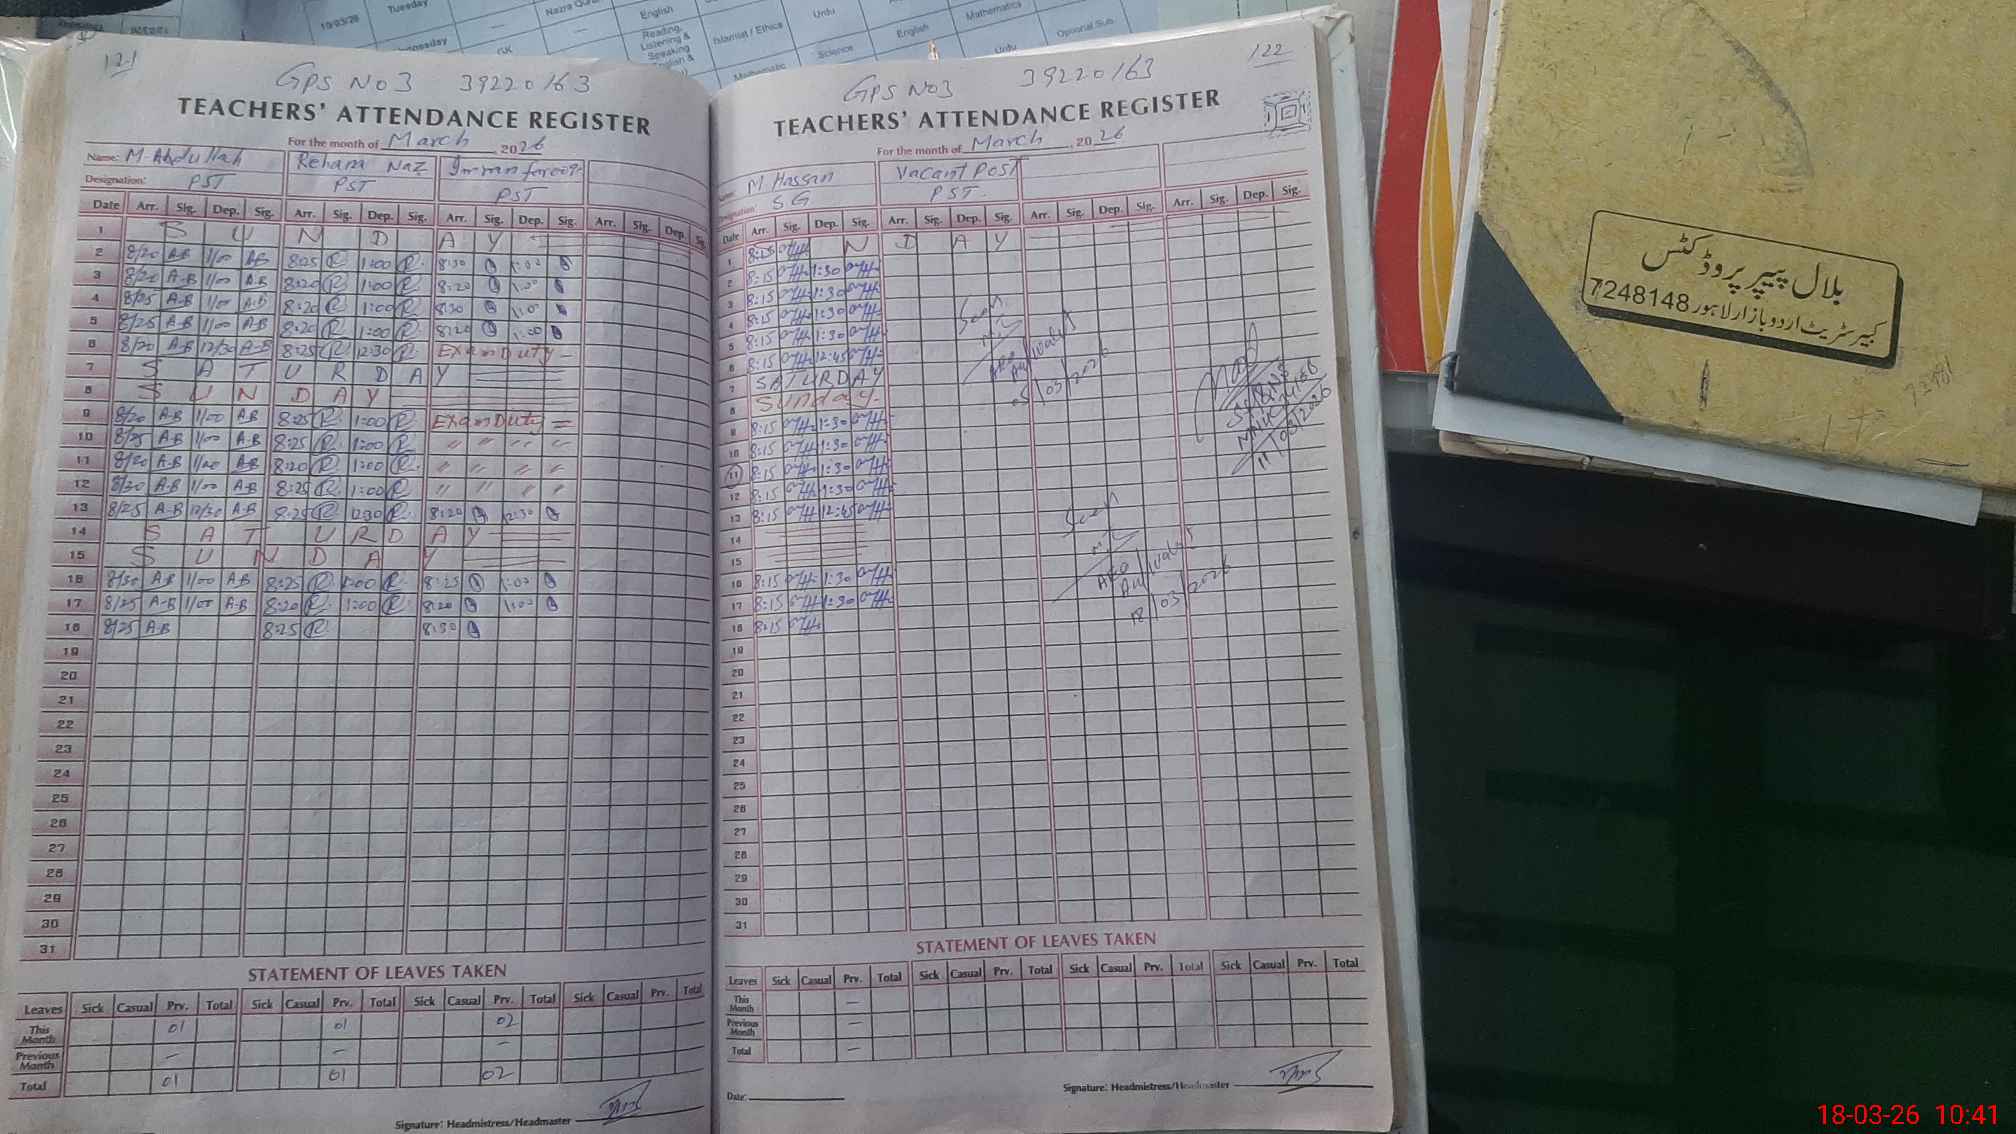 19/03/26 Tuesday Nazra English Urdu
Reading, Listening & Speaking Islamiat / Ethics English Mathematics Optional Sub.
GK Science Urdu
Mathematic
121
GPS No 3 39220163
TEACHERS' ATTENDANCE REGISTER
For the month of March, 2026
Name: M Abdullah Rehana Naz Imran farooq
Designation: PST PST PST
Date Arr. Sig. Dep. Sig. Arr. Sig. Dep. Sig. Arr. Sig. Dep. Sig. Arr. Sig. Dep. Sig.
1 S U N D A Y
2 8/20 A-B 1/00 AB 8:25 R 1:00 R 8:30 1:00
3 8/20 A-B 1/00 A-B 8:20 R 1:00 R 8:20 1:00
4 8/25 A-B 1/00 A-B 8:20 R 1:00 R 8:30 1:00
5 8/25 A-B 1/00 A-B 8:20 R 1:00 R 8:20 1:00
6 8/20 A-B 12/30 A-B 8:25 R 12:30 R Exam Duty
7 S A T U R D A Y
8 S U N D A Y
9 8/20 A-B 1/00 A-B 8:25 R 1:00 R Exam Duty =
10 8/25 A-B 1/00 A-B 8:25 R 1:00 R " " " "
11 8/20 A-B 1/00 A-B 8:20 R 1:00 R " " " "
12 8/30 A-B 1/00 A-B 8:25 R 1:00 R " " " "
13 8/25 A-B 12/30 A-B 8:25 R 12:30 R 8:20 12:30
14 S A T U R D A Y
15 S U N D A Y
16 8/30 A-B 1/00 AB 8:25 R 1:00 R 8:25 1:00
17 8/25 A-B 1/00 A-B 8:20 R 1:00 R 8:20 1:00
18 8/25 A-B 8:25 R 8:30
19
20
21
22
23
24
25
26
27
28
29
30
31
STATEMENT OF LEAVES TAKEN
Leaves Sick Casual Prv. Total Sick Casual Prv. Total Sick Casual Prv. Total Sick Casual Prv. Total
This Month 01 01 02
Previous Month - - -
Total 01 01 02
Signature: Headmistress/Headmaster
122
GPS No3 39220163
TEACHERS' ATTENDANCE REGISTER
For the month of March, 2026
M Hassan Vacant Post
Designation: S G PST
Date Arr. Sig. Dep. Sig. Arr. Sig. Dep. Sig. Arr. Sig. Dep. Sig. Arr. Sig. Dep. Sig.
1 N D A Y
2 8:15 1:30
3 8:15 1:30
4 8:15 1:30
5 8:15 1:30
6 8:15 12:45
7 SATURDAY
8 Sunday
9 8:15 1:30
10 8:15 1:30
11 8:15 1:30
12 8:15 1:30
13 8:15 12:45
14
15
16 8:15 1:30
17 8:15 1:30
18 8:15
19
20
21
22
23
24
25
26
27
28
29
30
31
Seen
05/03/2026
11/03/2026
Seen
18/03/2026
STATEMENT OF LEAVES TAKEN
Leaves Sick Casual Prv. Total Sick Casual Prv. Total Sick Casual Prv. Total Sick Casual Prv. Total
This Month -
Previous Month -
Total -
Date:
Signature: Headmistress/Headmaster
بلال پیپر پروڈکٹس
کبیر سٹریٹ اردو بازار لاہور 7248148
18-03-26 10:41